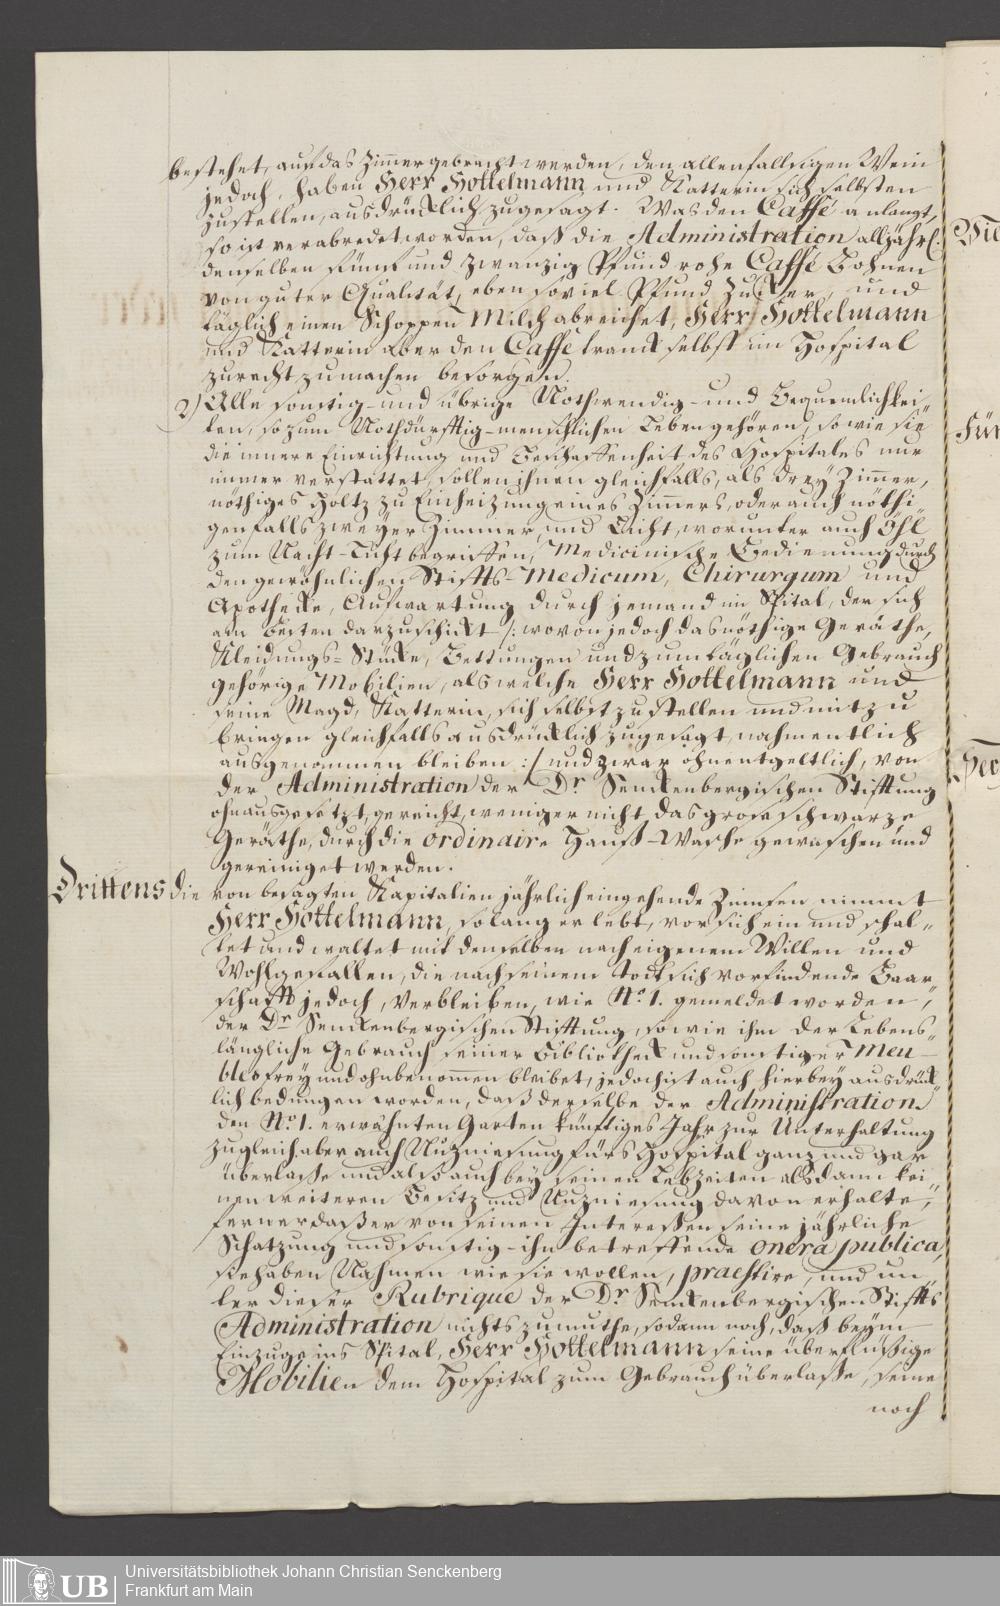 bestehet, auf das Zimmer gebracht werden, den allenfallsigen Wein
jedoch, haben Herr Hottelmann und Katterin sich selbsten
zustellen, ausdrücklich zugesagt. Was den Caffé anlangt,
so ist verabredet worden, daß die Administration alljährl.
denselben fünf und zwanzig Pfund rohe Caffé Bohnen
von guter Qualität, eben soviel Pfund Zucker, und
täglich einen Schoppen Milch abreichet, Herr Hottelmann
und Katterin aber den Caffé tranck selbst im Hospital
zurecht zu machen besorgen.
2) Alle sonstig- und übrige Nothwendig- und Bequemlichkei„
ten, so zum Nothdürfftig-menschlichen Leben gehören, so wie sie
die innere Einrichtung und Beschaffenheit des Hospitales nur
immer verstattet, sollen ihnen gleichfalls, als drey Zimer,
nöthiges Holtz zu Einheizung eines Zimers, oder auch nöthi„
genfalls zweyer Zimmer, und Licht, worunter auch Öhl
zum Nacht-Licht begriffen, Medicinische Bedienung durch
den gewöhnlichen Stiffts-Medicum, Chirurgum und
Apothecke, Aufwartung durch jemand im Spital, der sich
am besten darzu schickt /: wovon jedoch das nöthige Geräthe,
Kleidungs-Stücke, Bettungen und zum täglichen Gebrauch
gehörige Mobilien, als welche Herr Hottelmann und
seine Magd, Katterin, sich selbst zu stellen und mitzu
bringen gleichfalls ausdrücklich zugesagt, nahmentlich
ausgenommen bleiben :/ und zwar ohnentgeltlich, von
der Administration der Dr. Senckenbergischen Stifftung
ohnausgesetzt, gereicht, weniger nicht, das grose schwarze
Geräthe, durch die ordinaire Hauß-Wasche gewaschen und
gereiniget werden.
Drittens die von besagten Kapitalien jährlich eingehende Zinnsen nimmt
Herr Hottelmann, so lang er lebt, vor sich ein und schal„
tet und waltet mit denselben nach eigenem Willen und
Wohlgefallen, die nach seinem Tod sich vorfindende Baar„
schafft jedoch, verbleiben, wie No. 1. gemeldet worden,
der Dr. Senckenbergischen Stifftung, so wie ihm der Lebens„
längliche Gebrauch seiner Bibliotheck und sonstiger Meu„
bles frey und ohnbenommen bleibet, jedoch ist auch hierbey ausdrück„
lich bedungen worden, daß derselbe der Administration
den No. 1. erwähnten Garten künftiges Jahr zur Unterhaltung
zugleich aber auch Nuzniesung fürs Hospital ganz und gar
überlasse und also auch bey seinen Lebzeiten alsdann kei„
nen weiteren Besitz und Nuzniesung davon erhalte,
ferner daß er von seinen Interessen seine jährliche
Schatzung und sonstig-ihn betreffende onera publica,
sie haben Nahmen wie sie wollen, praestire, und un„
ter dieser Rubrique der Dr. Senckenbergischen Stiffts
Administration nichts zumuthe, sodann noch, daß beym
Einzuge ins Spital, Herr Hottelmann seine überflüßige
Mobilien dem Hospital zum Gebrauch überlasse, seine
noch
Universitätsbibliothek Johann Christian Senckenberg
Frankfurt am Main
UB